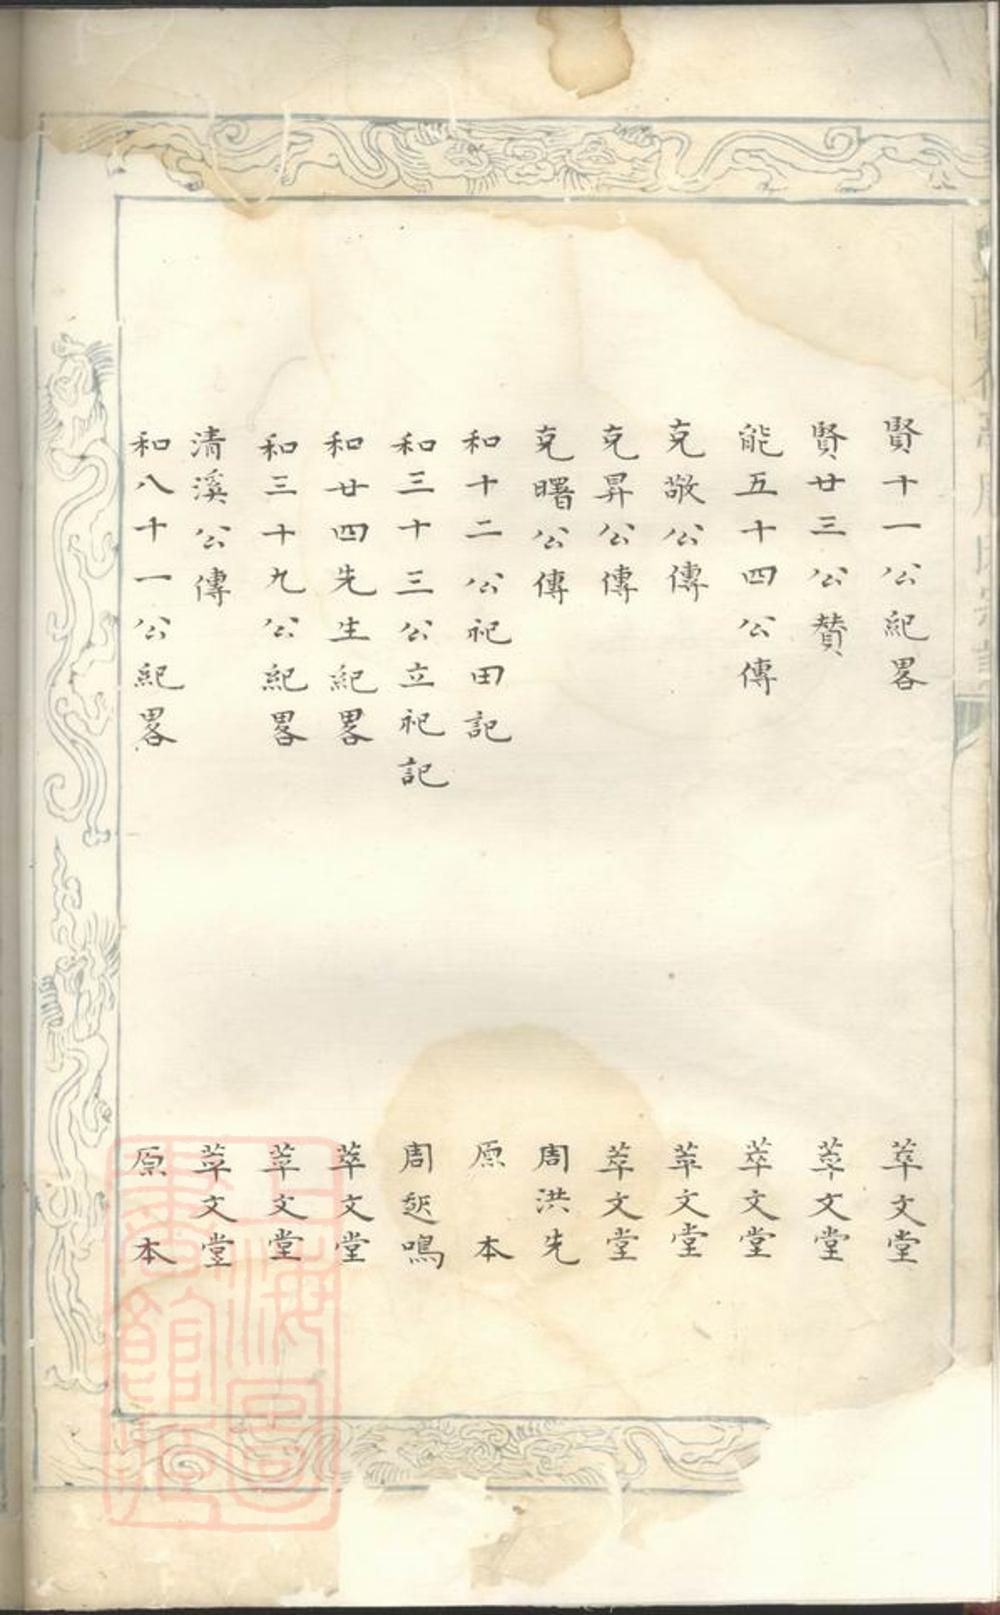 賢十一公紀畧 萃文堂
賢廿三公贊 萃文堂
能五十四公傳 萃文堂
克敬公傳 萃文堂
克昇公傳 萃文堂
克曙公傳 周洪先
和十二公祀田記 原本
和三十三公立祀記 周起鳴
和廿四先生紀畧 萃文堂
和三十九公紀畧 萃文堂
清溪公傳 萃文堂
和八十一公紀畧 原本
上海圖書館藏